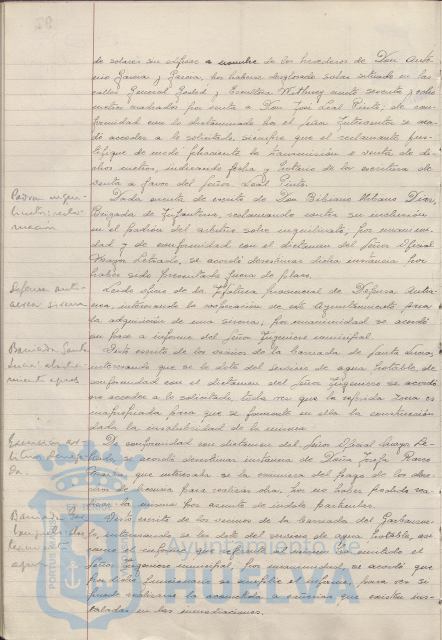 de solares sin edificar a nombre de los herederos de Don Anto-
nio Garcia y Garcia, por haberse desglosado solar situado en las
calles General Goded y Whitney
metros cuadrados por venta a Don José Leal Pinto; de con-
formidad con lo dictaminado por el Señor Interventor se acor-
dó acceder a lo solicitado, siempre que el reclamante jus-
tifique de modo fehaciente la transmisión o venta de di-
chos metros, indicando fecha y Notario de la escritura de
venta a favor del Señor Leal Pinto.
Padrón inqui-
linato: recla-
mación
Dada cuenta de escrito de Don Bibiano Urbano Dios,
Brigada de Infantería, reclamando contra su inclusión
en el padrón del arbitrio sobre inquilinato, por unanimi-
dad y de conformidad con el dictamen del Señor Oficial
Mayor Letrado, se acordó desestimar dicha instancia por
haber sido presentada fuera de plazo.
Defensa anti-
aerea sirena
Leido oficio de la Jefatura provincial de Defensa Antiae-
rea, interesando la cooperación de este Ayuntamiento para
la adquisición de una sirena, por unanimidad se acordó
su pase a informe del Señor Ingeniero municipal.
Barriada Santa
Lucia:
Visto escrito de los vecinos de la barriada de Santa Lucia,
interesando que se le dote del servicio de agua potable, de
conformidad con el dictamen del Señor Ingeniero se acordó
no acceder a lo solicitado, toda vez que la referida zona es
para que se fomente en ella la construcción
dada la insalubridad de la misma.
De conformidad con dictamen del Señor Oficial Mayor Le-
trado se acordó desestimar instancia de Doña Josefa Rosco
que interesaba se la eximiera del pago de los dere-
chos de licencia para realizar obra, por no haber podido rea-
lizar la misma por asunto de indole particular.
Visto escrito de los vecinos de la barriada del Garbanzue-
lo, interesando se les dote del servicio de agua potable, así
como el informe que referente al mismo ha emitido el
Señor Ingeniero municipal, por unanimidad se acordó que
por dicho funcionario se amplie el informe, para ver si
puede realizarse la acometida a cañerias que existen ins-
taladas en las inmediaciones.
Ayuntamiento de
HUELVA